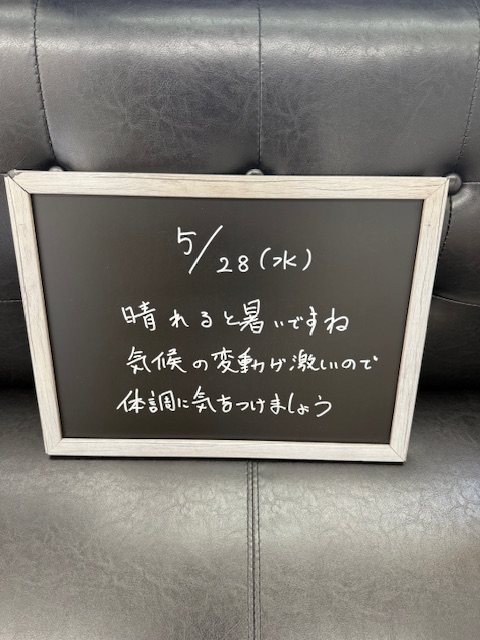 5/28(水)
晴れると暑いですね
気候の変動が激しいので
体調に気をつけましょう